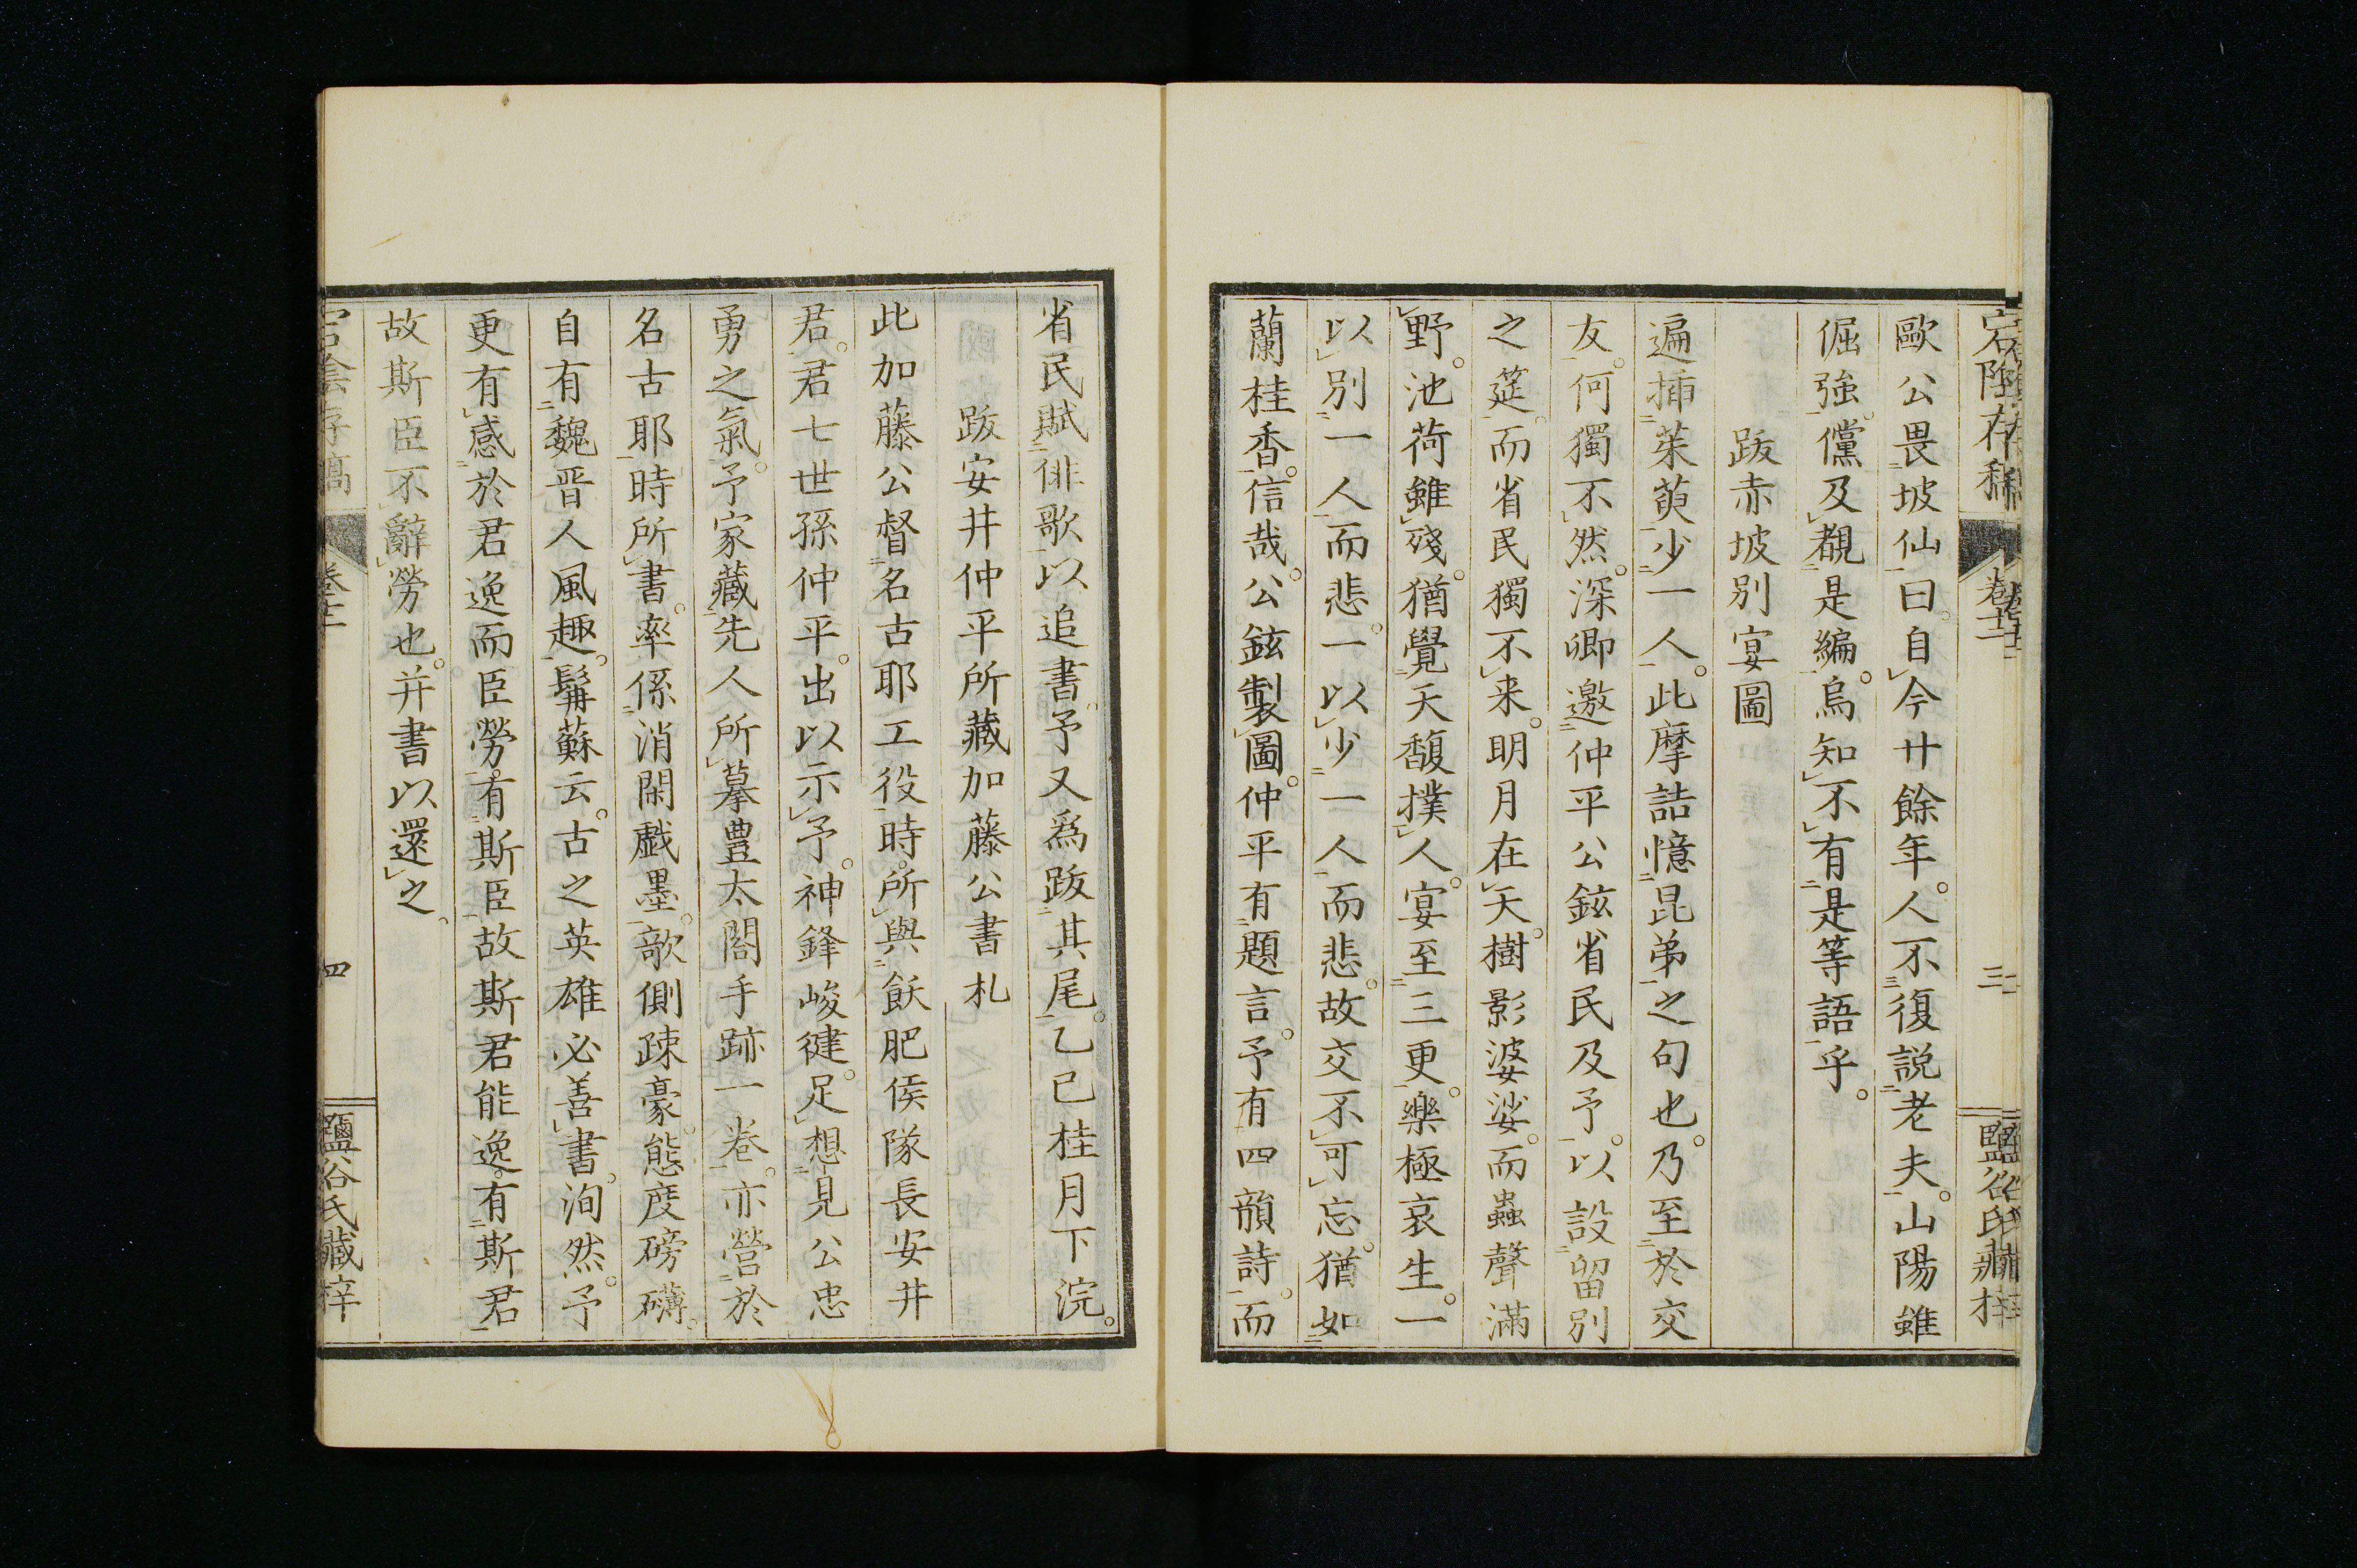 宕陰存稿 卷十二 三 鹽谷氏藏梓
歐公畏坡仙曰。自今廿餘年。人不復説老夫。山陽雖
倔強。儻及覩是編。烏知不有是等語乎。
跋赤坡別宴圖
遍插茱萸少一人。此摩詰憶昆弟之句也。乃至於交
友。何獨不然。深卿邀仲平公鉉省民及予。以設留別
之筵。而省民獨不来。明月在天。樹影婆娑。而蟲聲滿
野。池荷雖殘。猶覺天馥撲人。宴至三更。樂極哀生。一
以別一人而悲。一以少一人而悲。故交不可忘。猶如
蘭桂香。信哉。公鉉製圖。仲平有題言。予有四韻詩。而
省民賦俳歌以追書。予又爲跋其尾。乙巳桂月下浣。
跋安井仲平所藏加藤公書札
此加藤公督名古耶工役時。所與飫肥侯隊長安井
君。君七世孫仲平。出以示予。神鋒峻健。足想見公忠
勇之氣。予家藏先人所摹豊太閤手跡一卷。亦營於
名古耶時所書。率係消閑戯墨。欹側踈豪。態度磅礴。
自有魏晋人風趣。髴蘇云。古之英雄必善書。洵然。予
更有感於君逸而臣勞。有斯臣故斯君能逸。有斯君
故斯臣不辭勞也。并書以還之。
宕陰存稿 卷十二 四 鹽谷氏藏梓